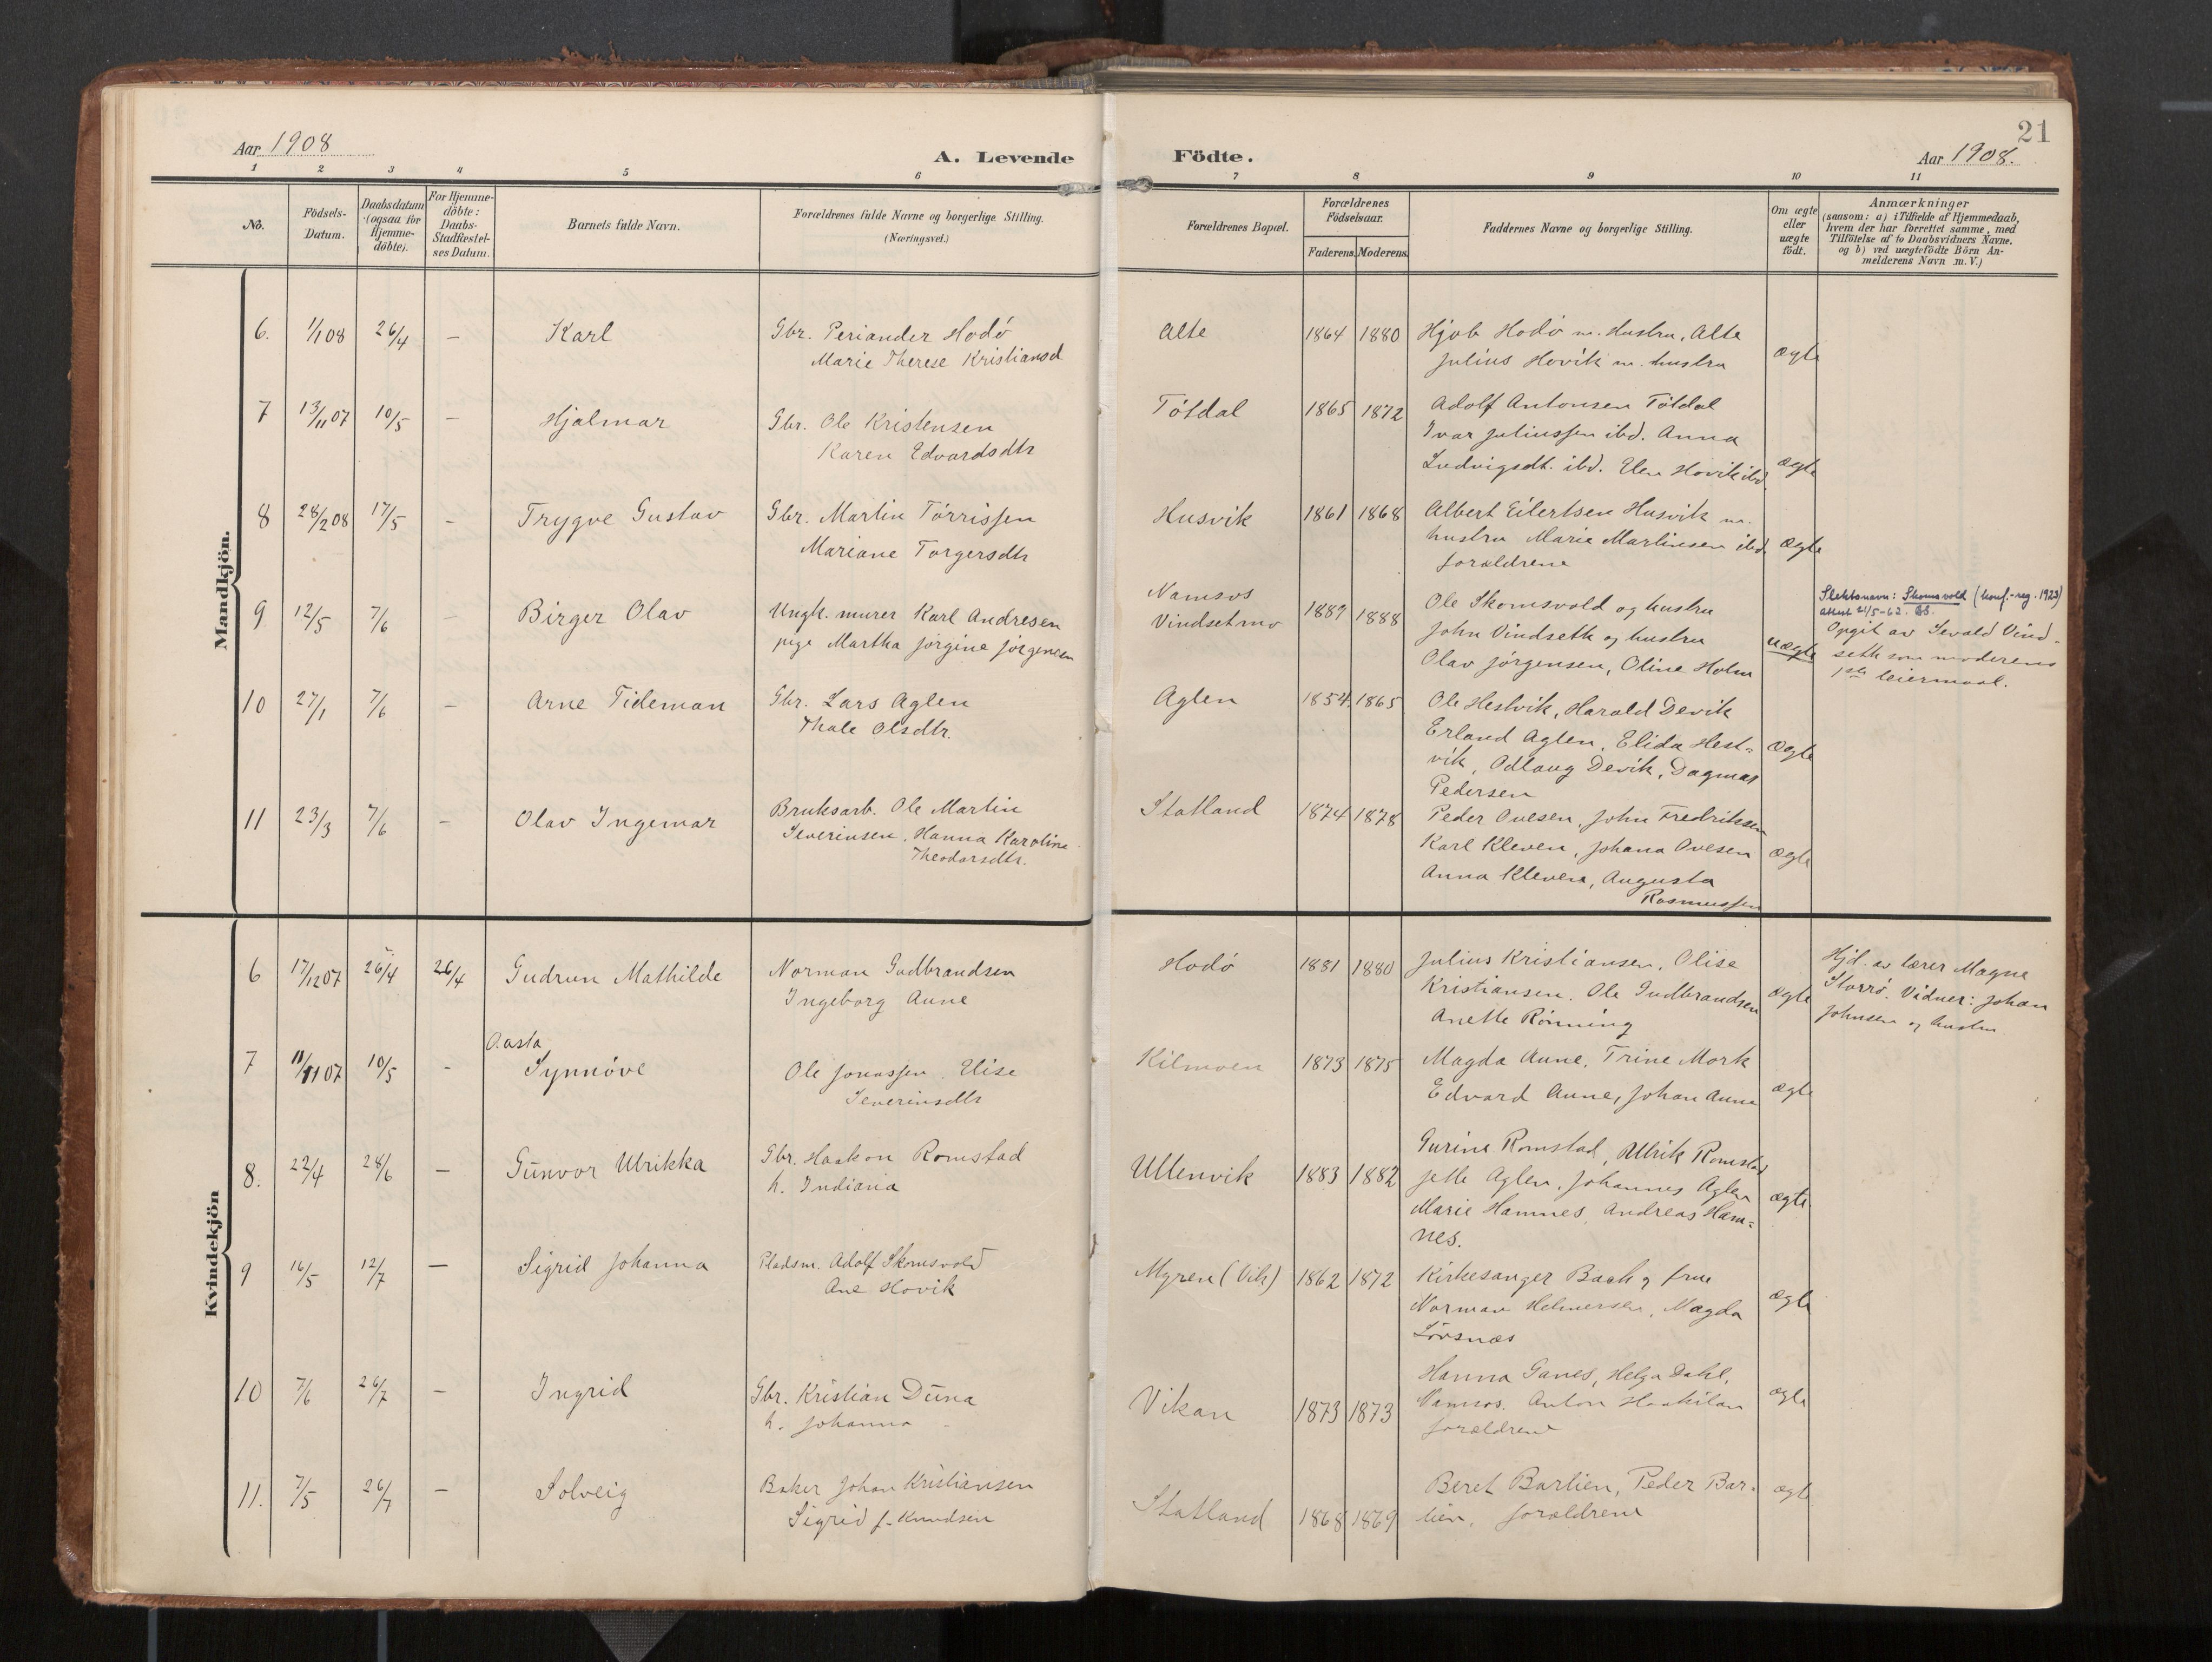 21
Aar 1908
A. Levende Födte.
Aar 1908.
1 2 3 4 5 6 7 8 9 10 11
No.
Födsels-Datum.
Daabsdatum (ogsaa for Hjemme-döbte).
For Hjemme-döbte: Daabs-Stadfæstel-ses Datum.
Barnets fulde Navn.
Forældrenes fulde Navne og borgerlige Stilling.
(Næringsvei.)
Forældrenes Bopæl.
Forældrenes Födselsaar.
Faderens. Moderens.
Faddernes Navne og borgerlige Stilling.
Om ægte eller uægte födt.
Anmærkninger
(saasom: a) i Tilfælde af Hjemmedaab,
hvem der har forrettet samme, med
Tilföielse af to Daabsvidners Navne,
og b) ved uægtefödte Börn An-
melderens Navn m. V.)
Mandkjön.
6. 1/1 08 26/4 – Karl Gbr. Periander Hodö Alte 1864 1880 Hjab Hodö m. Hustru, Alte
Marie Therese Kristiansd Julius Hovik m. hustru ægte
7 13/11 07 10/5 – Hjalmar Gbr. Ole Kristensen Tötdal 1865 1872 Adolf Antonsen Tötdal
Karen Edvardsdtr Ivar Juliussen ibd. Anna
Ludvigsdt. ibd. Elen Hovik ibd. ægte
8 28/2 08 17/5 – Trygve Gustav Gbr. Martin Törrissen Husvik 1861 1868 Albert Eilertsen Husvik m.
Mariane Torgersdtr hustru Marie Martinsen ibd ægte
forældrene
9 12/5 7/6 – Birger Olav Ungk. murer Karl Andresen Namsos 1889 1888 Ole Skomsvold og hustru
pige Martha Jörgine Jörgensen Vindsetmo John Vindseth og hustru
Olav Jörgensen, Oline Holm uægte
Slektsnavn: Skomsvold (konf.-reg. 1923)
attest 21/5-62.
Opgit av Sevald Vind-
seth som moderens
1ste leiermaal.
10 27/1 7/6 – Arne Tideman Gbr. Lars Aglen Aglen 1854 1865 Ole Hestvik, Harald Devik
Thale Olsdtr. Erland Aglen, Elida Hest- ægte
vik, Odlaug Devik, Dagmar
Pedersen
11 23/3 7/6 – Olav Ingemar Bruksarb. Ole Martin Statland 1874 1878 Peder Ovesen, John Fredriksen
Severinsen, Hanna Karoline Karl Kleven, Johana Ovesen ægte
Theodorsdtr. Anna Kleven, Augusta
Rasmussen
Kvindekjön
6 17/12 07 26/4 26/4 Gudrun Mathilde Norman Gudbrandsen Hodö 1881 1880 Julius Kristiansen, Olise
Ingeborg Aune Kristiansen. Ole Gudbrandsen ægte
Anette Rönning
Hjd. av lærer Magne
Storrö. Vidner: Johan
Johnsen og hustru.
7 11/11 07 10/5 – Aasta Synnöve Ole Jonassen. Elise Kilmoen 1873 1875 Magda Aune, Trine Mork
Severinsdtr Edvard Aune, Johan Aune ægte
8. 22/4 28/6 – Gunvor Ulrikka Gbr. Haakon Romstad Utlenvik 1883 1882 Gurine Romstad, Ulrik Romstad
h. Indiana Jette Aglen, Johannes Aglen ægte.
Marie Hamnes, Andreas Ham-
nes.
9 16/5 12/7 – Sigrid Johanna Pladsm. Adolf Skomsvold Myren (Vik) 1862 1872 Kirkesanger Baak og frue
Ane Hovik Norman Helmersen, Magda ægte
Lövsnæs
10 7/6 26/7 – Ingrid Gbr. Kristian Duna Vikan 1873 1873 Hanna Ganes, Helga Dahl,
h. Johanna Namsos. Anton ægte
forældrene
11. 7/5 26/7 – Solveig Baker Johan Kristiansen Statland 1868 1869 Beret Barlien, Peder Bar-
Sigrid f. Knudsen lien, forældrene ægte